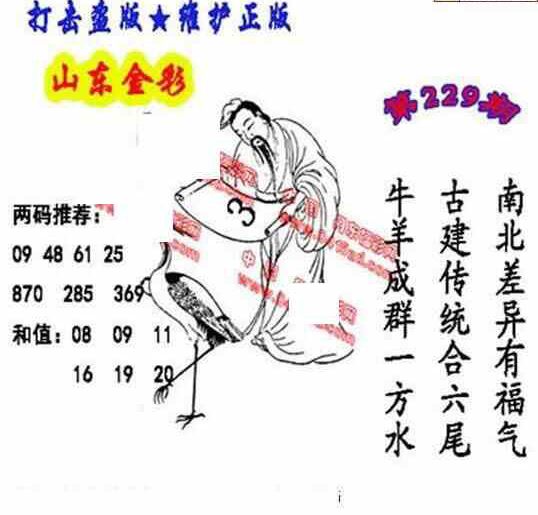 打击盗版★维护正版
山东金彩
第229期
两码推荐:
09 48 61 25
870 285 369
和值: 08 09 11
16 19 20
3
南北差异有福气
古建传统合六尾
牛羊成群一方水